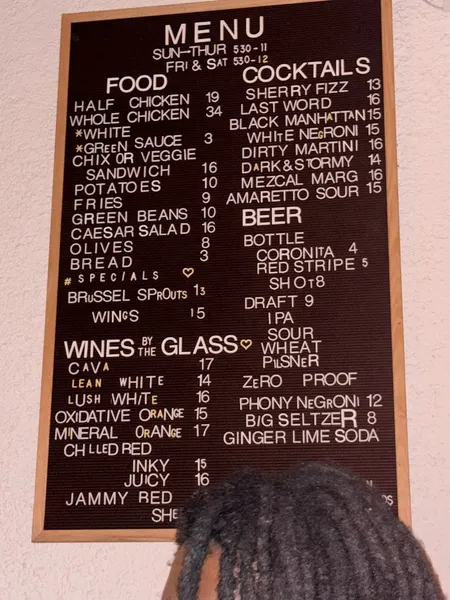 MENU
SUN-THUR 530-11
FRI & SAT 530-12
FOOD
HALF CHICKEN 19
WHOLE CHICKEN 34
*WHITE
*GREEN SAUCE 3
CHIX OR VEGGIE
SANDWICH 16
POTATOES 10
FRIES 9
GREEN BEANS 10
CAESAR SALAD 16
OLIVES 8
BREAD 3
#SPECIALS ♡
BRUSSEL SPROUTS 13
WINGS 15
WINES BY THE GLASS ♡
CAVA 17
LEAN WHITE 14
LUSH WHITE 16
OXIDATIVE ORANGE 15
MINERAL ORANGE 17
CHILLED RED
INKY 15
JUICY 16
JAMMY RED
SHE
COCKTAILS
SHERRY FIZZ 13
LAST WORD 16
BLACK MANHATTAN 15
WHITE NEGRONI 15
DIRTY MARTINI 16
DARK&STORMY 14
MEZCAL MARG 16
AMARETTO SOUR 15
BEER
BOTTLE
CORONITA 4
RED STRIPE 5
SHOT 8
DRAFT 9
IPA
SOUR
WHEAT
PILSNER
ZERO PROOF
PHONY NEGRONI 12
BIG SELTZER 8
GINGER LIME SODA